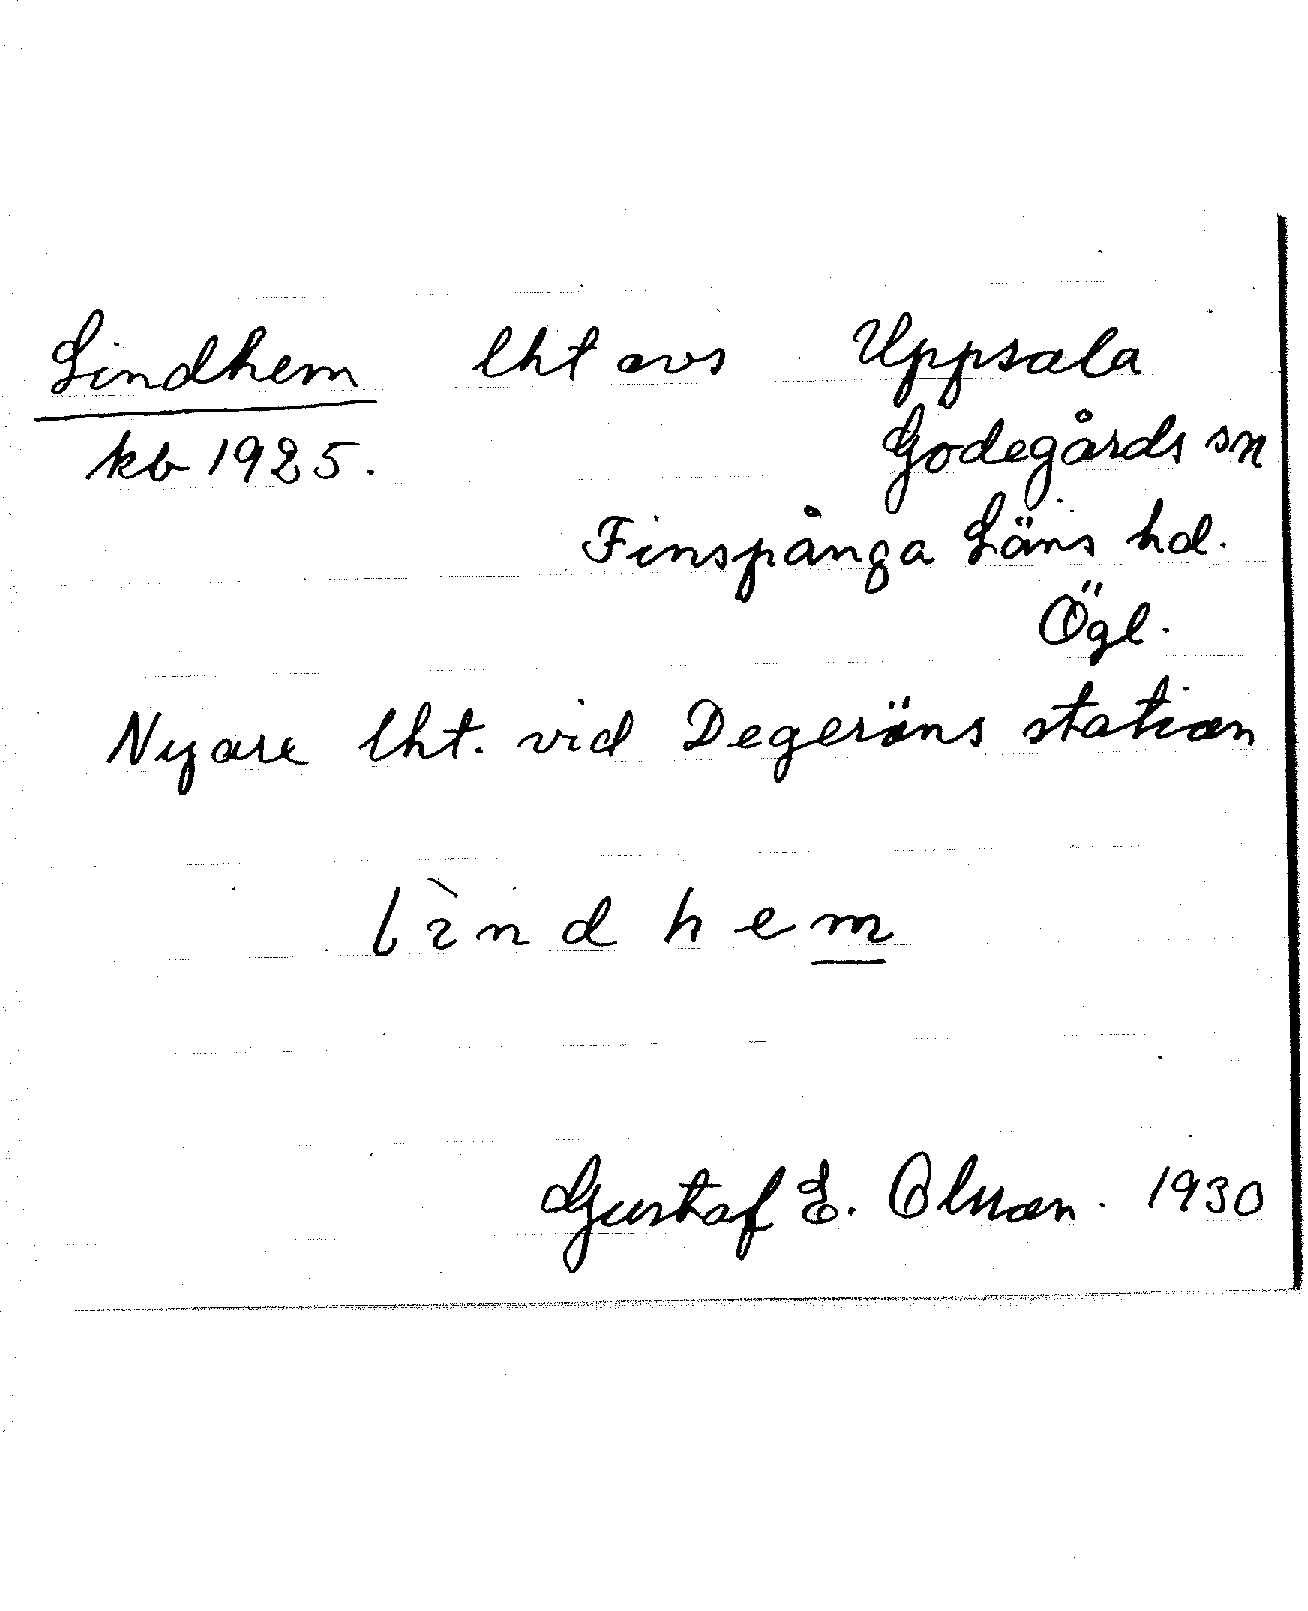 Lindhem lht avs Uppsala
kb 1925. Godegårds sn
Finspånga Läns hd.
Ögl.
Nyare lht. vid Degeröns station
lìndhem
Gustaf E. Olsson. 1930